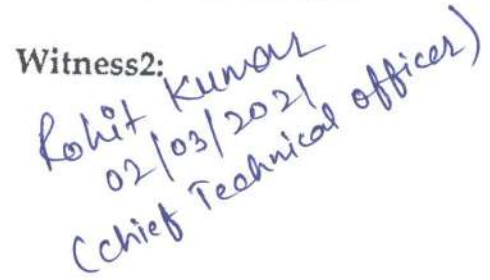 Witness2:
Rohit Kumar
02/03/2021
(Chief Technical officer)